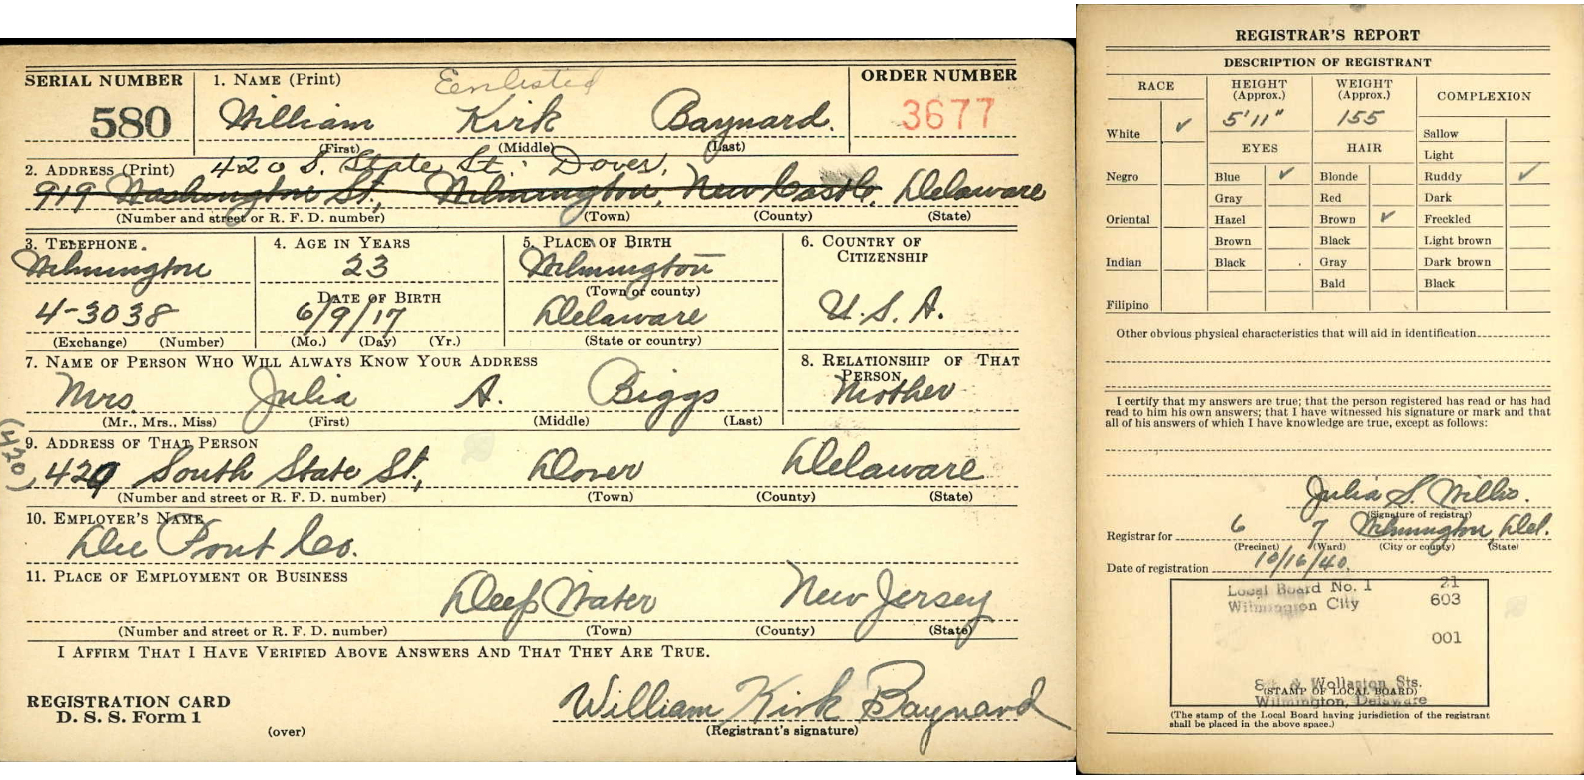 SERIAL NUMBER
580
1. NAME (Print)
Enlisted
ORDER NUMBER
3677
William Kirk Baynard.
(First) (Middle) (Last)
2. ADDRESS (Print)
420 S. State St. Dover,
919 Washington St., Wilmington, New Castle, Delaware
(Number and street or R. F. D. number) (Town) (County) (State)
3. TELEPHONE
Wilmington
4-3038
(Exchange) (Number)
4. AGE IN YEARS
23
DATE OF BIRTH
6/9/17
(Mo.) (Day) (Yr.)
5. PLACE OF BIRTH
Wilmington
(Town or county)
Delaware
(State or country)
6. COUNTRY OF
CITIZENSHIP
U. S. A.
7. NAME OF PERSON WHO WILL ALWAYS KNOW YOUR ADDRESS
Mrs. Julia A. Biggs
(Mr., Mrs., Miss) (First) (Middle) (Last)
8. RELATIONSHIP OF THAT
PERSON
Mother
9. ADDRESS OF THAT PERSON
(420)
429 South State St., Dover Delaware
(Number and street or R. F. D. number) (Town) (County) (State)
10. EMPLOYER'S NAME
Du Pont Co.
11. PLACE OF EMPLOYMENT OR BUSINESS
Deep Water New Jersey
(Number and street or R. F. D. number) (Town) (County) (State)
I AFFIRM THAT I HAVE VERIFIED ABOVE ANSWERS AND THAT THEY ARE TRUE.
REGISTRATION CARD
D. S. S. Form 1
(over)
William Kirk Baynard
(Registrant's signature)
REGISTRAR'S REPORT
DESCRIPTION OF REGISTRANT
RACE
White ✓
Negro
Oriental
Indian
Filipino
HEIGHT
(Approx.)
5'11"
WEIGHT
(Approx.)
155
EYES
Blue ✓
Gray
Hazel
Brown
Black
HAIR
Blonde
Red
Brown ✓
Black
Gray
Bald
COMPLEXION
Sallow
Light
Ruddy ✓
Dark
Freckled
Light brown
Dark brown
Black
Other obvious physical characteristics that will aid in identification
I certify that my answers are true; that the person registered has read or has had
read to him his own answers; that I have witnessed his signature or mark and that
all of his answers of which I have knowledge are true, except as follows:
Julia S. Willis.
(Signature of registrar)
Registrar for 6 7 Wilmington, Del.
(Precinct) (Ward) (City or county) (State)
Date of registration 10/16/40.
Local Board No. 1 21
Wilmington City 603
001
8th & Wollaston Sts.
(STAMP OF LOCAL BOARD)
Wilmington, Delaware
(The stamp of the Local Board having jurisdiction of the registrant
shall be placed in the above space.)